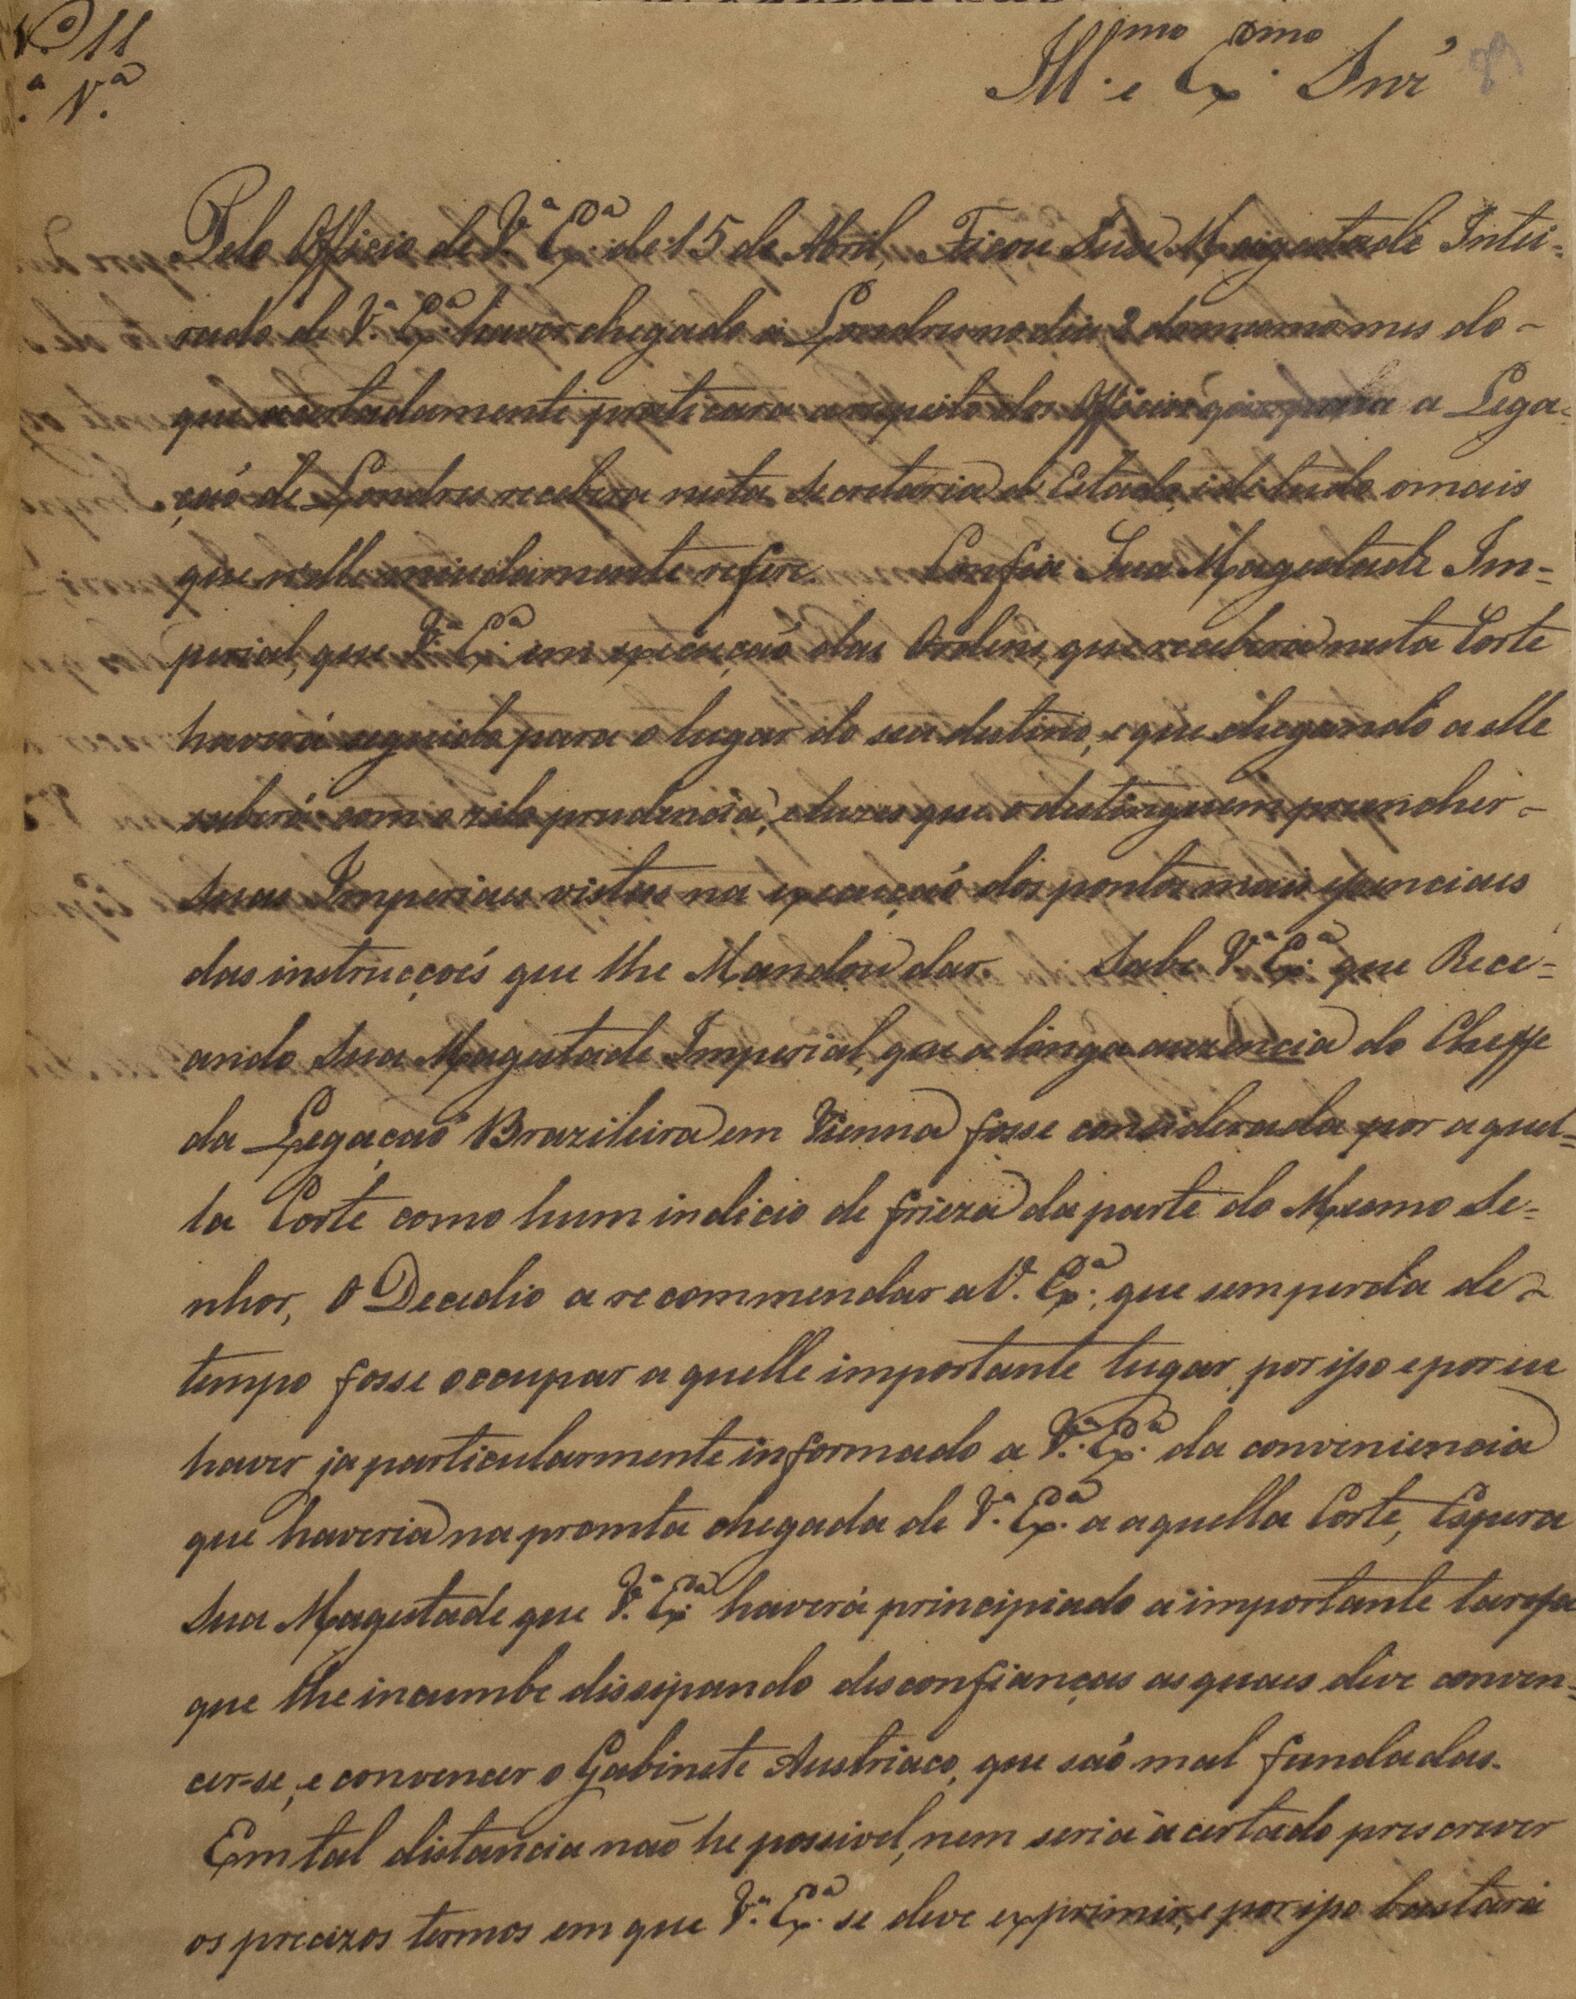 N.º 11
.ª V.ª
Ill.mo e Ex.mo Snr.
Pelo Officio de V.ª Ex.ª de 15 de Abril, Ficou Sua Magestade Intei-
rado de V.ª Ex.ª haver chegado a Londres no dia 2 do mesmo mes do-
que acertadamente praticara a respeito dos Officios que para a Lega-
çaõ de Londres recebera nesta Secretaria d'Estado, e de tudo o mais
que n'elle miudamente refere. Confia Sua Magestade Im-
perial, que V.ª Ex.ª em execuçaõ das Ordens, que recebera nesta Corte
haverá seguido para o lugar do seu destino, e que chegando a elle
saberá com o zelo prudencia, e luzes que o destinguem preencher-
Suas Imperiaes vistas na execuçaõ dos pontos mais essenciaes
das instrucçoẽs que lhe Mandou dar. Sabe V.ª Ex.ª que Rece-
ando Sua Magestade Imperial, que a longa auzencia do Cheffe
da Legaçaõ Brazileira em Vienna fosse considerada por aquel-
la Corte como hum indicio de frieza da parte do Mesmo Se-
nhor, O Decedio a recommendar a V. Ex.ª, que sem perda de-
tempo fosse occupar aquelle importante lugar, por isso e por eu
haver ja particularmente informado a V.ª Ex.ª da conveniencia
que haveria na promta chegada de V.ª Ex.ª a aquella Corte, Espera
Sua Magestade que V.ª Ex.ª haverá principiado a importante tarefa
que lhe incumbe dissipando desconfianças as quaes deve conven-
cer-se, e convencer o Gabinete Austriaco, que saõ mal fundadas.
Em tal distancia naõ he possivel, nem seria acertado prescrever
os precizos termos em que V.ª Ex.ª se deve exprimir, e por isso bastará